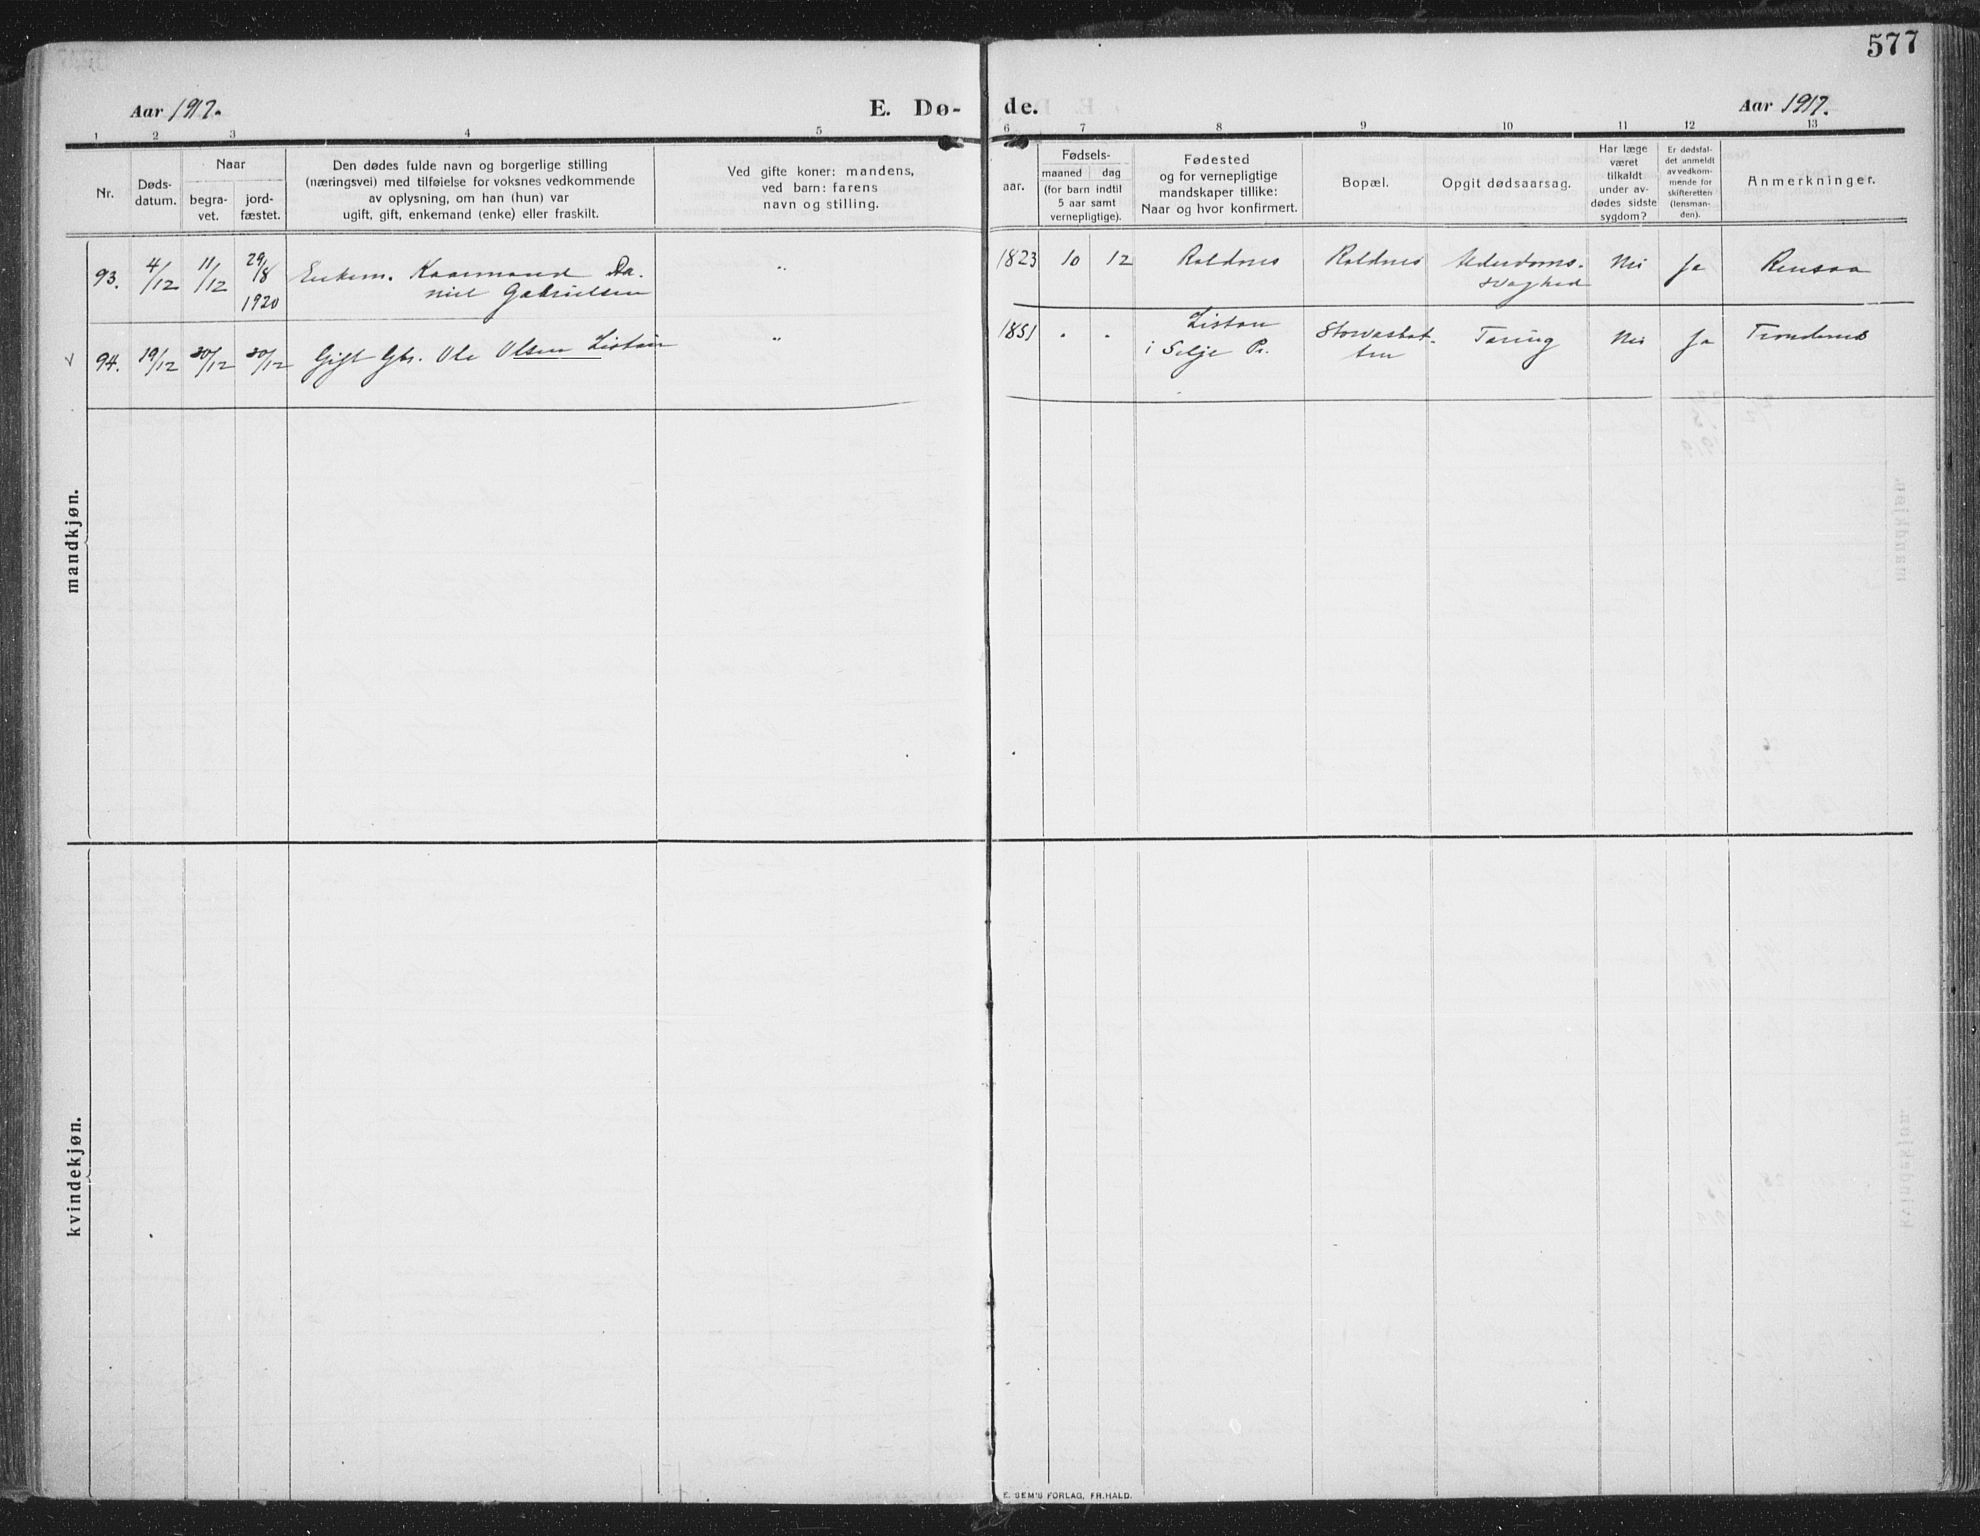 577
Aar 1917.
E. Dø-
de.
Aar 1917.
1 2 3 4 5 6 7 8 9 10 11 12 13
Nr.
Døds-
datum.
Naar
begra-
vet.
jord-
fæstet.
Den dødes fulde navn og borgerlige stilling
(næringsvei) med tilføielse for voksnes vedkommende
av oplysning, om han (hun) var
ugift, gift, enkemand (enke) eller fraskilt.
Ved gifte koner: mandens,
ved barn: farens
navn og stilling.
aar.
Fødsels-
maaned dag
(for barn indtil
5 aar samt
vernepligtige).
Fødested
og for vernepligtige
mandskaper tillike:
Naar og hvor konfirmert.
Bopæl.
Opgit dødsaarsag.
Har læge
været
tilkaldt
under av-
dødes sidste
sygdom?
Er dødsfal-
det anmeldt
av vedkom-
mende for
skifteretten
(lensman-
den).
Anmerkninger.
93. 4/12 11/12 29/8 1920 Enkem. Kaarmand Da-
niel Gabrielsen
" 1823 10 12 Roldnes Roldnes Alderdoms-
svaghed
Nei Ja Rensaa
94. 19/12 30/12 30/12 Gift Gbr. Ole Olsen Listau
" 1851 " " Listau
i Selje Pr.
Storvasbot-
ten
Tæring Nei Ja Trondenes
mandkjøn.
kvindekjøn.
E. SEM'S FORLAG, FR.HALD.